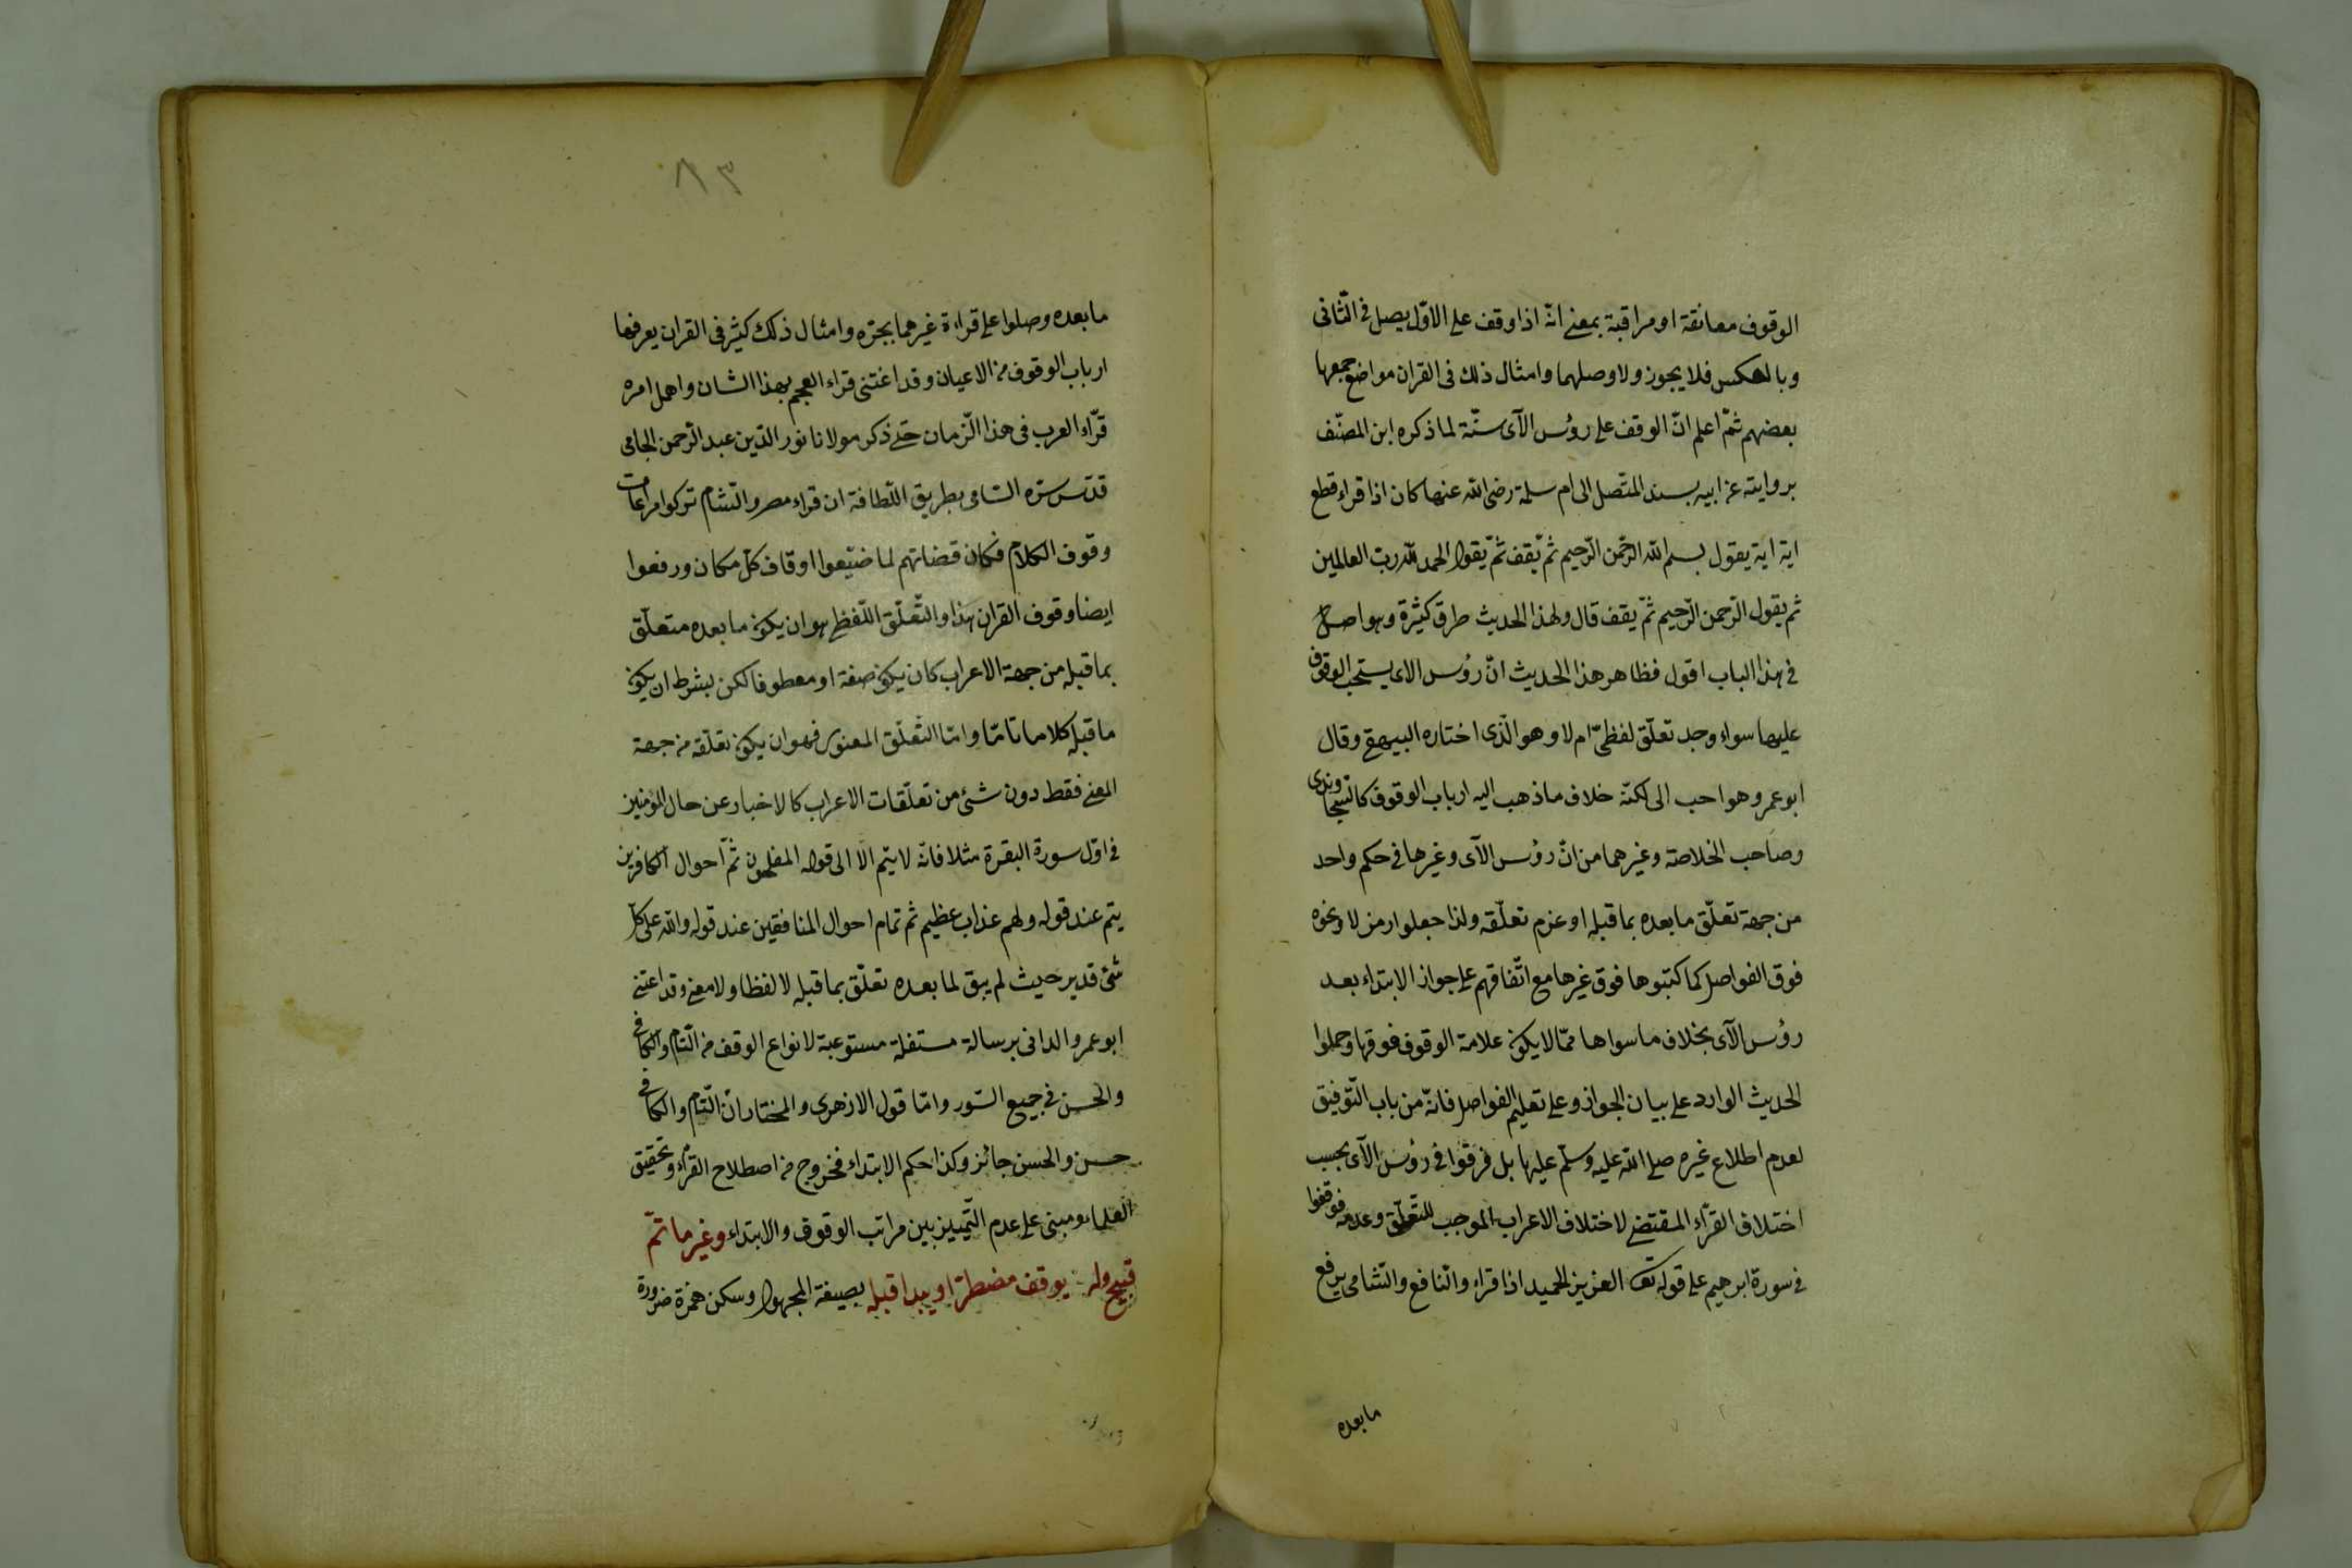 الوقوف معانقة او مراقبة بمعنے انّه اذا وقف علے الاوّل يصل فے الثّانى
وبالعكس فلا يجوز ولا وصلهما وامثال ذلك فى القران مواضع جمعها
بعضهم ثمّ اعلم انّ الوقف علے رؤس الآى سنّة لما ذكره ابن المصنّف
بروايته عن ابيه بسند المتصل الى ام سلمة رضى الله عنها كان اذا قراء قطع
اية اية يقول بسم الله الرّحمن الرّحيم ثمّ يقف ثمّ يقول الحمد لله ربّ العالمين
ثم يقول الرّحمن الرّحيم ثمّ يقف قال ولهذا الحديث طرق كثيرة وهو اصل
فے هذا الباب اقول فظاهر هذا الحديث انّ رؤس الاى يستحب الوقوف
عليها سواء وجد تعلّق لفظىّ ام لا وهو الّذى اختاره البيهقے وقال
ابو عمرو هو احب الى لكنّه خلاف ما ذهب اليه ارباب الوقوف كالسجاوندى
وصاحب الخلاصة وغيرهما من انّ رؤس الآى وغيرها فے حكم واحد
من جهة تعلّق ما بعده بما قبله او عزم تعلّقه ولذا جعلوا رمز لا ونحوه
فوق الفواصل كما كتبوها فوق غيرها مع اتّفاقهم علے جواز الابتداء بعد
رؤس الآى بخلاف ما سواها ممّا لا يكون علامة الوقوف فوقها وحملوا
الحديث الوارد علے بيان الجواز وعلے تعليم الفواصل فانّه من باب التّوفيق
لعدم اطلاع غيره صلے الله عليه وسلّم عليها بل فرقوا فے رؤس الآى بحسب
اختلاف القرّاء المقتضے لاختلاف الاعراب الموجب للتعلّق وعدمه فوقفوا
فے سورة ابرهيم علے قوله تعالى العزيز الحميد اذا قراء والنافع والشّامى يرفع
ما بعده
٨٣
ما بعده وصلوا علے قراءة غيرهما بجرّه وامثال ذلك كثير فى القران يعرفها
ارباب الوقوف من الاعيان وقد اعتنى قراء العجم بهذا الشان واهمل امره
قرّاء العرب فى هذا الزّمان حتے ذكر مولانا نور الدّين عبد الرّحمن الجامى
قدّس سرّه السّامى بطريق اللّطافة ان قراء مصر والشّام تركوا مراعات
وقوف الكلام فكان قضاتهم لما ضيّعوا اوقاف كلّ مكان ورفعوا
ايضا وقوف القران هذا والتّعلّق اللّفظے هو ان يكون ما بعده متعلّق
بما قبله من جهة الاعراب كان يكون صفة او معطوفا لكن بشرط ان يكون
ما قبله كلاما تامّا وامّا التّعلّق المعنوى فهو ان يكون تعلّقه من جهة
المعنے فقط دون شئ من تعلّقات الاعراب كالاخبار عن حال المؤمنين
فے اوّل سورة البقرة مثلا فانّه لا يتم الّا الى قوله المفلحون ثمّ احوال الكافرين
يتم عند قوله ولهم عذاب عظيم ثم تمام احوال المنافقين عند قوله والله على كلّ
شئ قدير حيث لم يبق لما بعده تعلّق بما قبله لا لفظا ولا معنے وقد اعتنے
ابو عمرو الدانى برسالة مستقلة مستوعبة لانواع الوقف من التّام والكافے
والحسن فے جميع السّور وامّا قول الازهرى والمختار انّ التّام والكافے
حسن والحسن جائز وكذا حكم الابتداء فخروج من اصطلاح القرّاء وتحقيق
العلماء ومبنى علے عدم التّمييز بين مراتب الوقوف والابتداء وغير ما تمّ
قبيح وله يوقف مضطرّا ويبدا قبله بصيغة المجهول وسكن همزة ضرورة